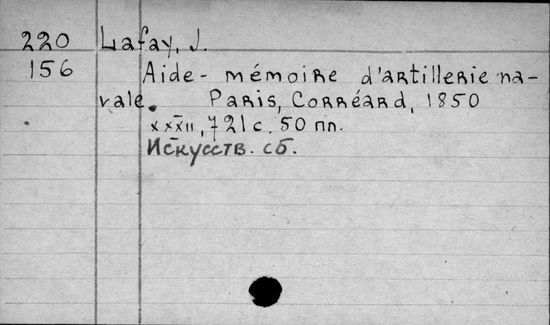 220 Lafay, J.
156 Aide-mémoire d'artillerie na-
vale. Paris, Corréard, 1850
xxxii, 721 с. 50 пл.
Искусств. сб.